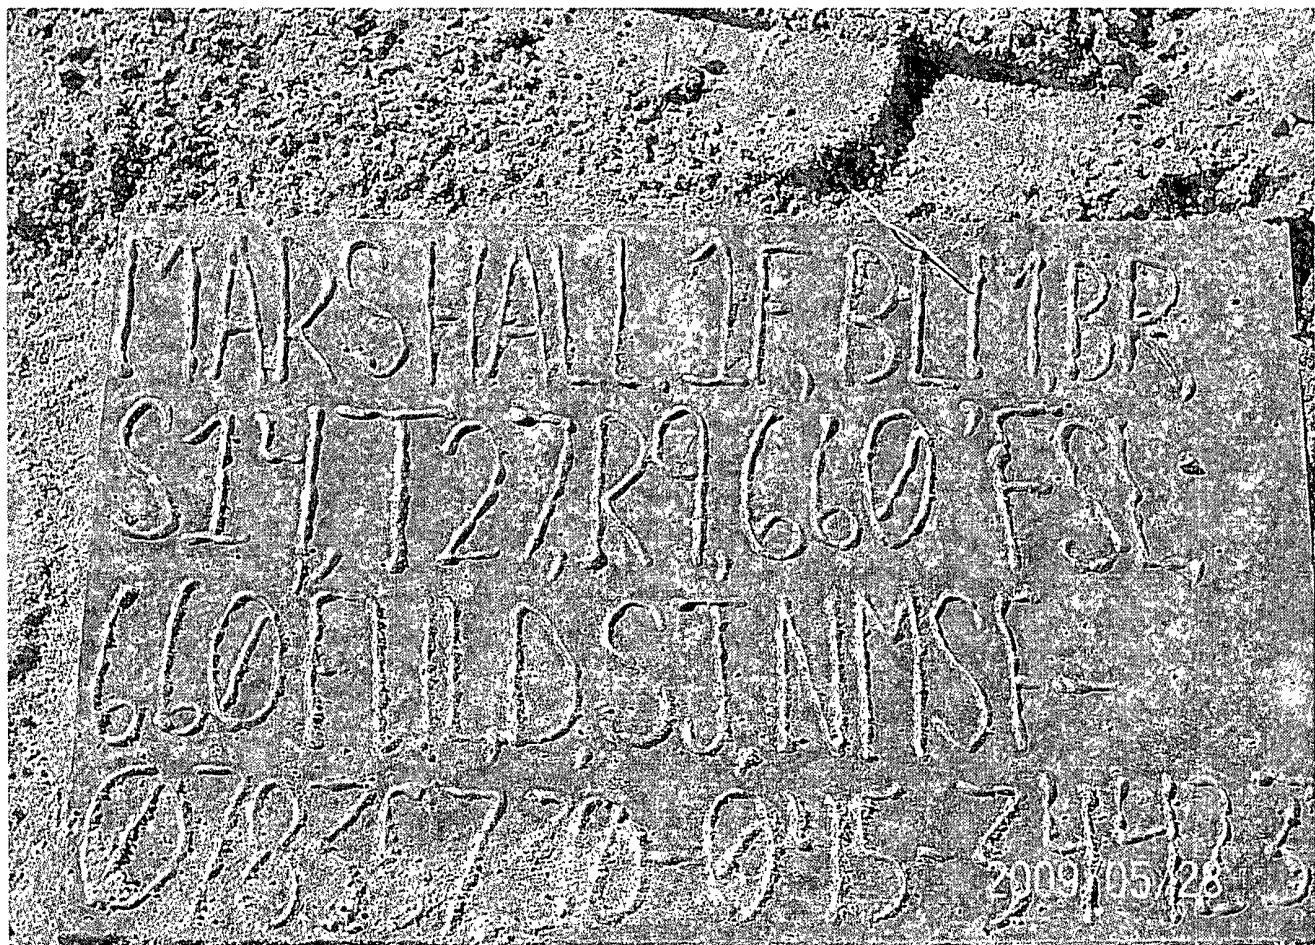 MARSHALL 1F, BLM, BR,
S14,T27,R9,660'FSL,
660FWL,D,SJ,NMSF-
078357,30-045-34423
2009/05/28